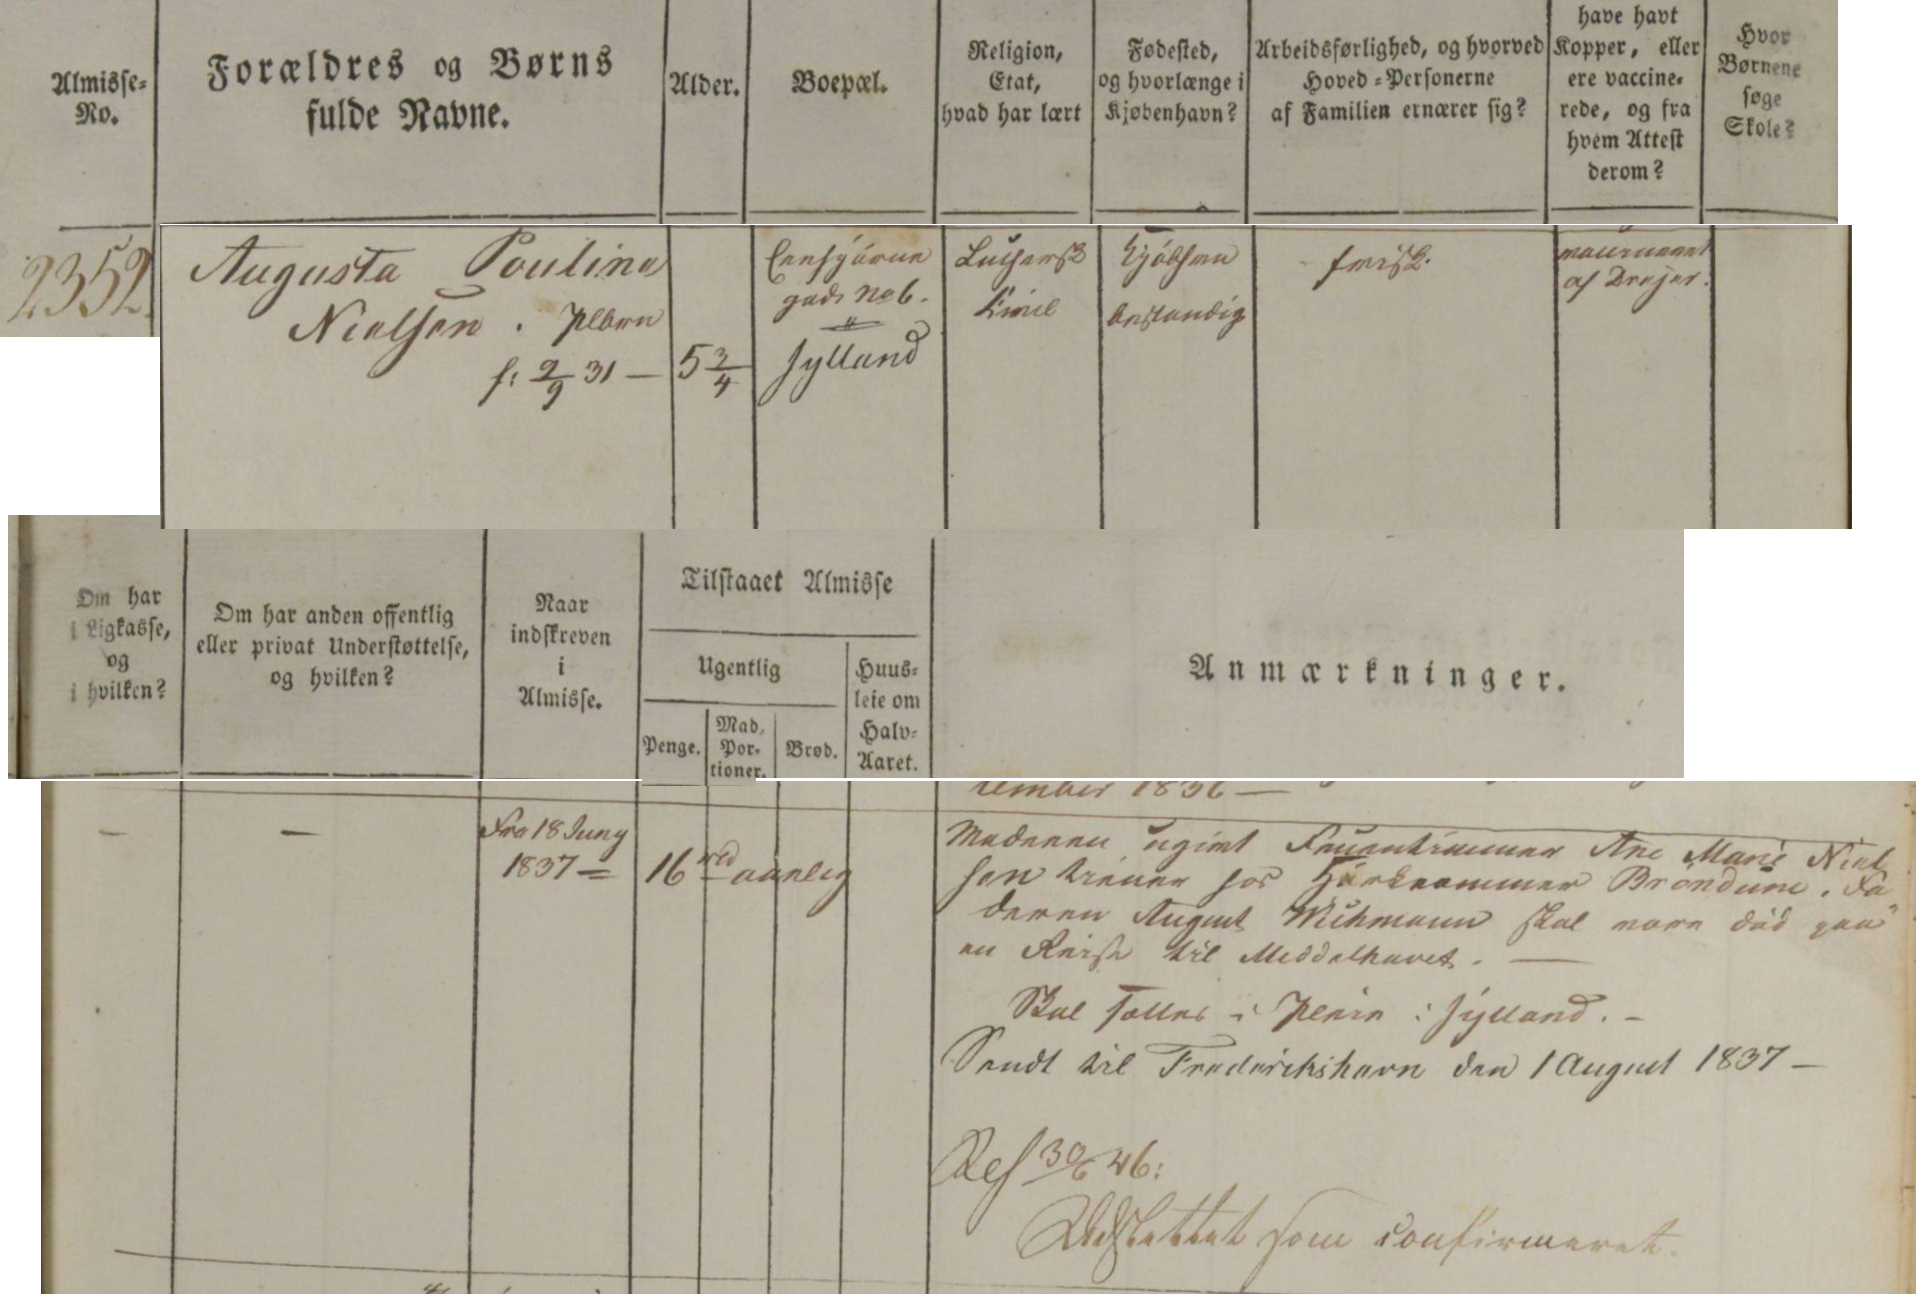 Almisse-
No.
Forældres og Børns
fulde Navne.
Alder.
Boepæl.
Religion,
Etat,
hvad har lært
Fødested,
og hvorlænge i
Kjøbenhavn?
Arbeidsførlighed, og hvorved
Hoved-Personerne
af Familien ernærer sig?
have havt
Kopper, eller
ere vaccine-
rede, og fra
hvem Attest
derom?
Hvor
Børnene
søge
Skole?
2352.
Augusta Pouline
Nielsen . Plbrn
f: 2/9 31 —
5 3/4
gade No 6.
Jylland
Luthersk
Kjøbhvn
bestandig
frisk.
vaccineret
af Dreyer.
Om har
i Ligkasse,
og
i hvilken?
Om har anden offentlig
eller privat Understøttelse,
og hvilken?
Naar
indskreven
i
Almisse.
Tilstaaet Almisse
Ugentlig
Penge.
Mad-
Por-
tioner.
Brød.
Huus-
leie om
Halv-
Aaret.
Anmærkninger.
tember 1836 —
—
—
Fra 18 Juny
1837 =
16 rd aarlig
Moderen ugivt Fruentimmer Ane Marie Niel
sen tiener hos Brøndum . Fa
deren August Wichmann skal være død paa
en Reise til Middelhavet . —
Skal sættes i Pleie i Jylland . —
Sendt til Frederikshavn den 1 August 1837 —
Res 30/6 46:
Udslettet som confirmeret.